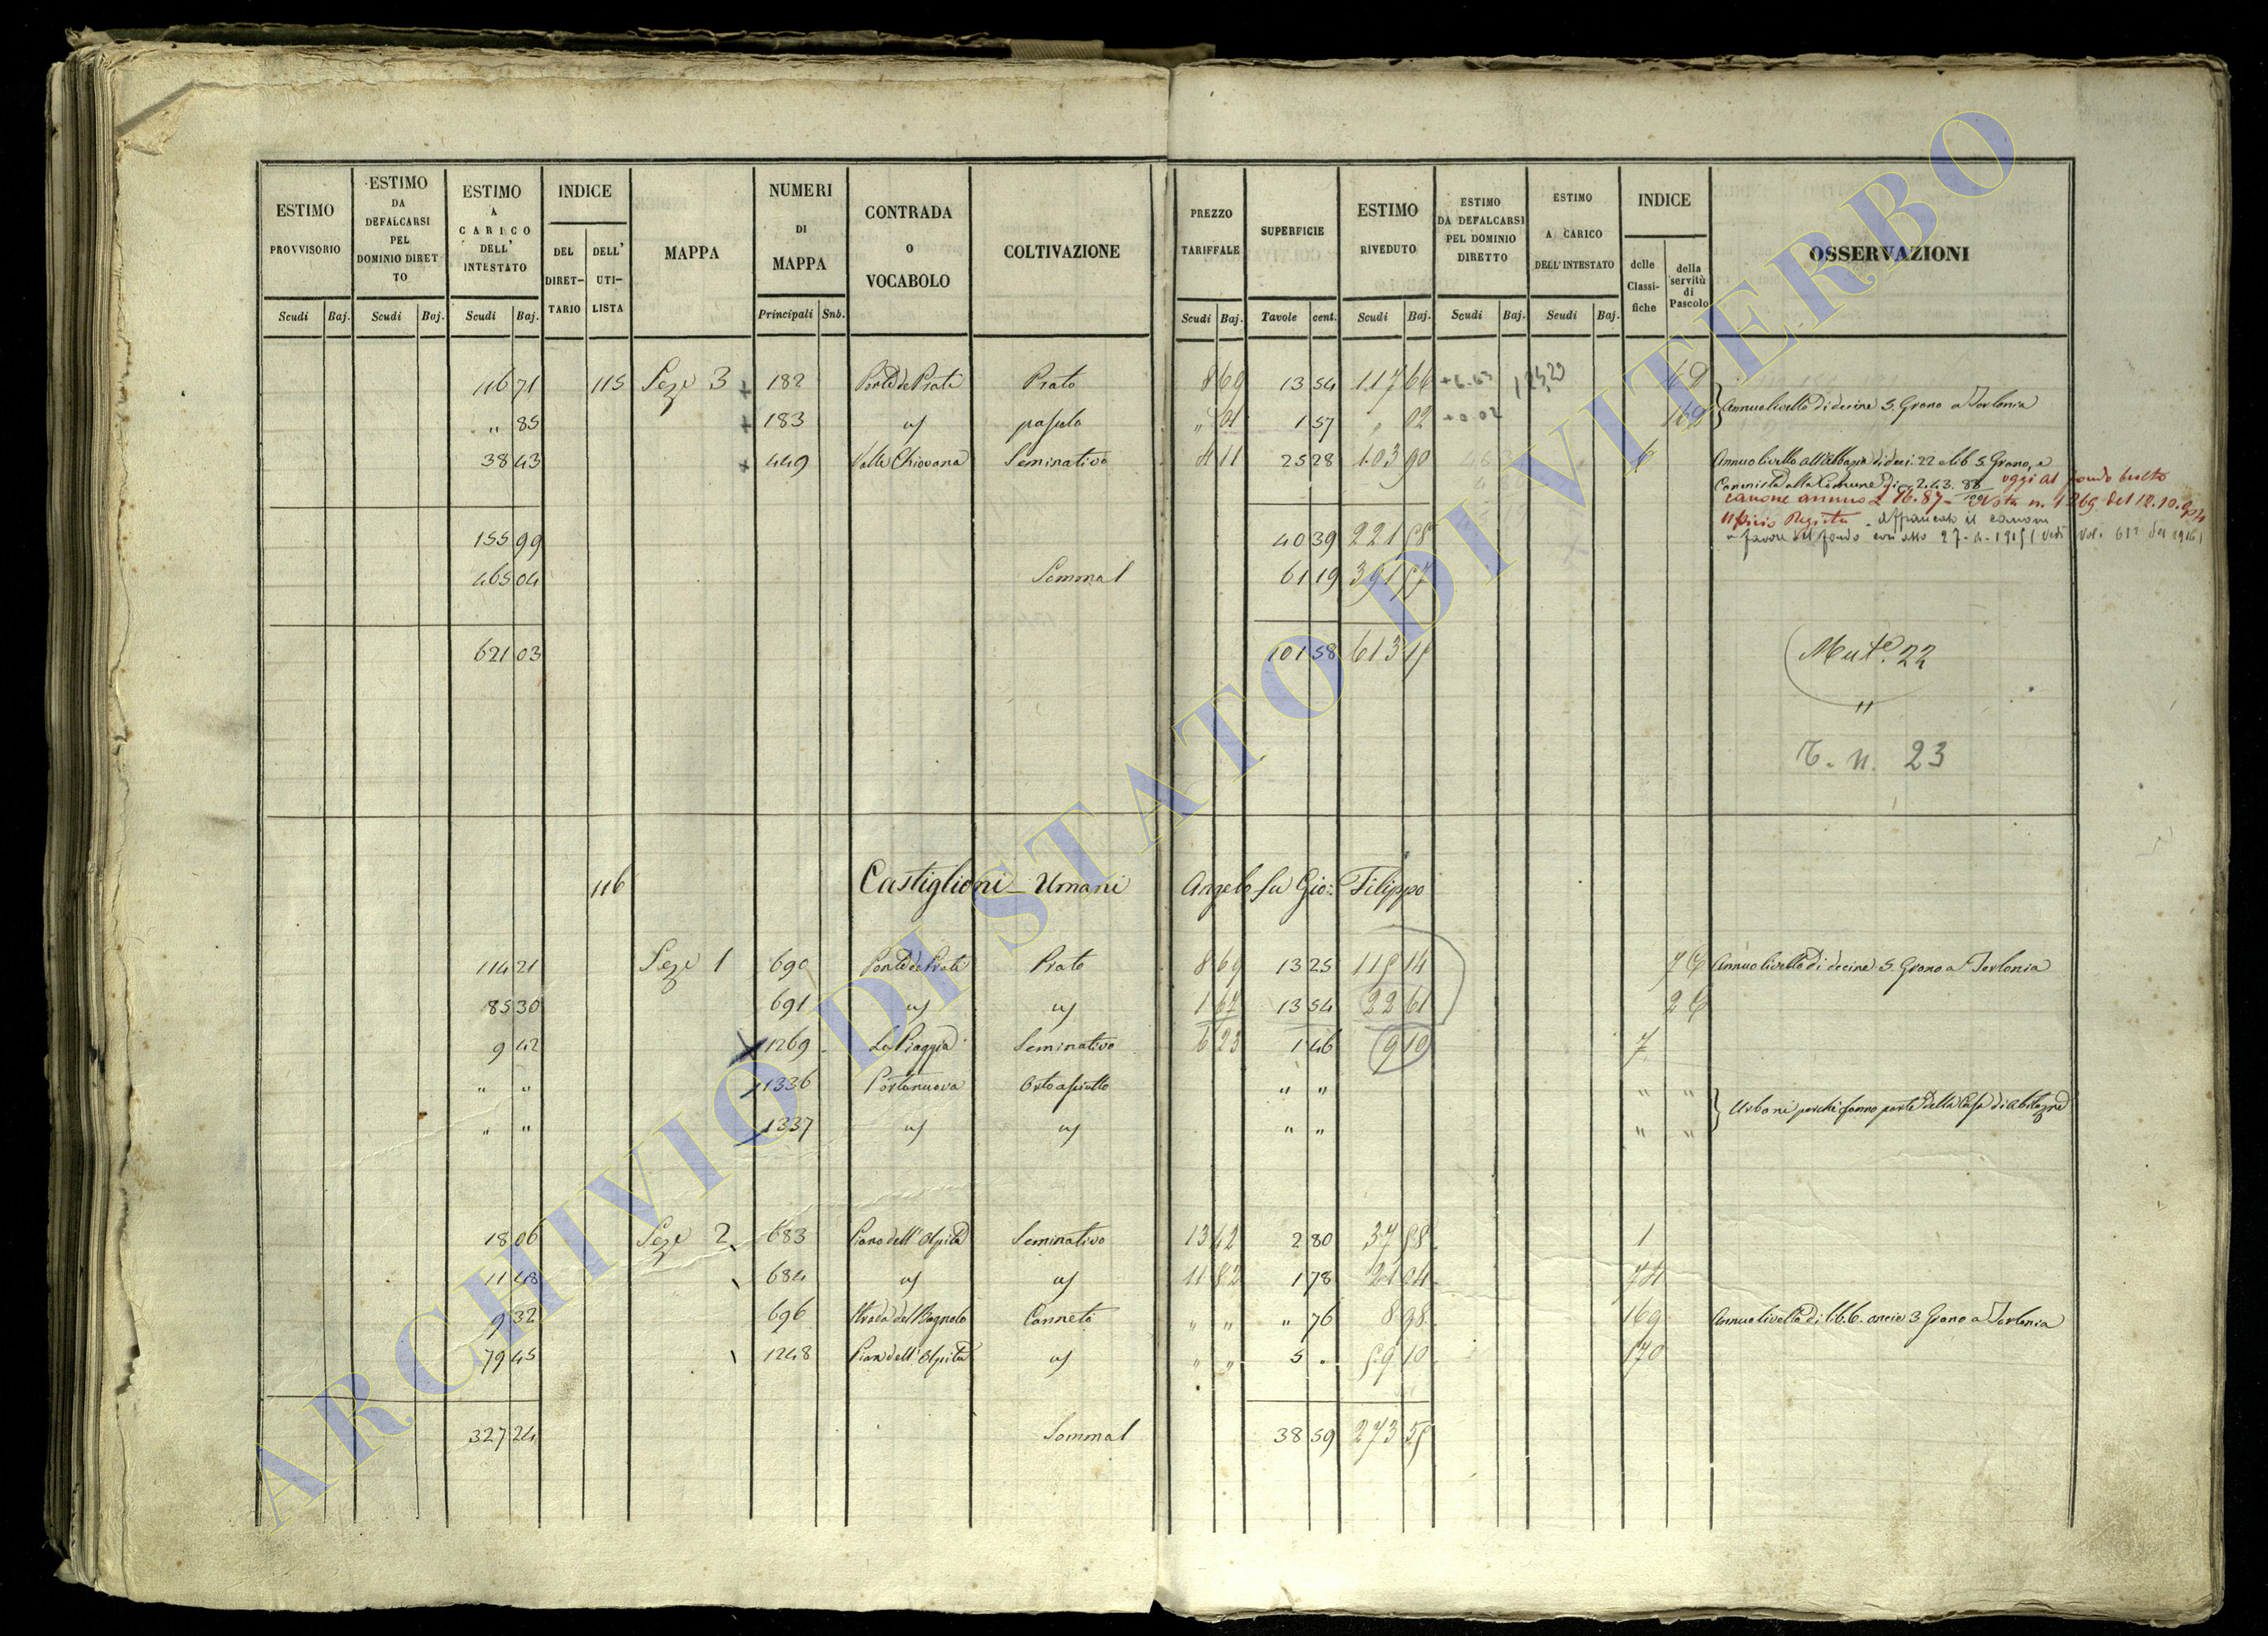 ESTIMO PROVVISORIO
ESTIMO DA DEFALCARSI PEL DOMINIO DIRETTO
ESTIMO A CARICO DELL' INTESTATO
INDICE
DEL DIRETTARIO
DELL' UTILISTA
MAPPA
NUMERI DI MAPPA
CONTRADA O VOCABOLO
COLTIVAZIONE
PREZZO TARIFFALE
SUPERFICIE
ESTIMO RIVEDUTO
ESTIMO DA DEFALCARSI PEL DOMINIO DIRETTO
ESTIMO A CARICO DELL'INTESTATO
INDICE
delle Classifiche
della servitù di Pascolo
OSSERVAZIONI
Scudi Baj. Scudi Baj. Scudi Baj. Principali Snb. Scudi Baj. Tavole cent. Scudi Baj. Scudi Baj. Scudi Baj.
116 71 115 Seze 3 182 Ponte de Prati Prato 8 69 13 54 117 66
" 85 183 uf pascolo " 01 1 57 " 02 +0.02
Annuo livello di decine 5. Grano a Torlonia
38 43 449 Valle Chiovana Seminativo 4 11 25 28 103 90 6 Annuo livello all'abbazia di deci. 22 e lib 5. Grano, e
Canonista alla Comune di 2.43.88 oggi al fondo culto
canone annuo L 16.87 Nota n. 1269 del 12.10.
Ufficio Registro. Affrancato il canone
a favore del fondo con atto
155 99 40 39 221 58
465 04 Somma 61 19 391 57
621 03 101 58 613 15
Mut.e 22
"
T. n. 23
116 Castiglioni - Umani Angelo fu Gio: Filippo
114 21 Seze 1 690 Ponte de Prati Prato 8 69 13 25 115 14 Annuo livello di decine 5. Grano a Torlonia
85 30 691 uf uf 1 67 13 54 22 61
9 42 1269 La Piaggia Seminativo 6 23 1 46 9 10 7
" " 1336 Portanuova Orto asciutto " " " "
" " 1337 uf uf " " " "
Urbani perchè fanno parte della Casa di abitazne
18 06 Seze 2 683 Piano dell'Ospità Seminativo 13 42 2 80 37 58 1
11 48 684 uf uf 11 82 1 78 21 04 74
9 32 696 Strada del Bagnolo Canneto " " " 76 8 98 169 Annuo livello di lib. 6. oncie 3 Grano a Torlonia
79 45 1248 Pian dell'Ospità uf " " 5 . 59 10 170
327 24 Somma 38 59 273 55
ARCHIVIO DI STATO DI VITERBO